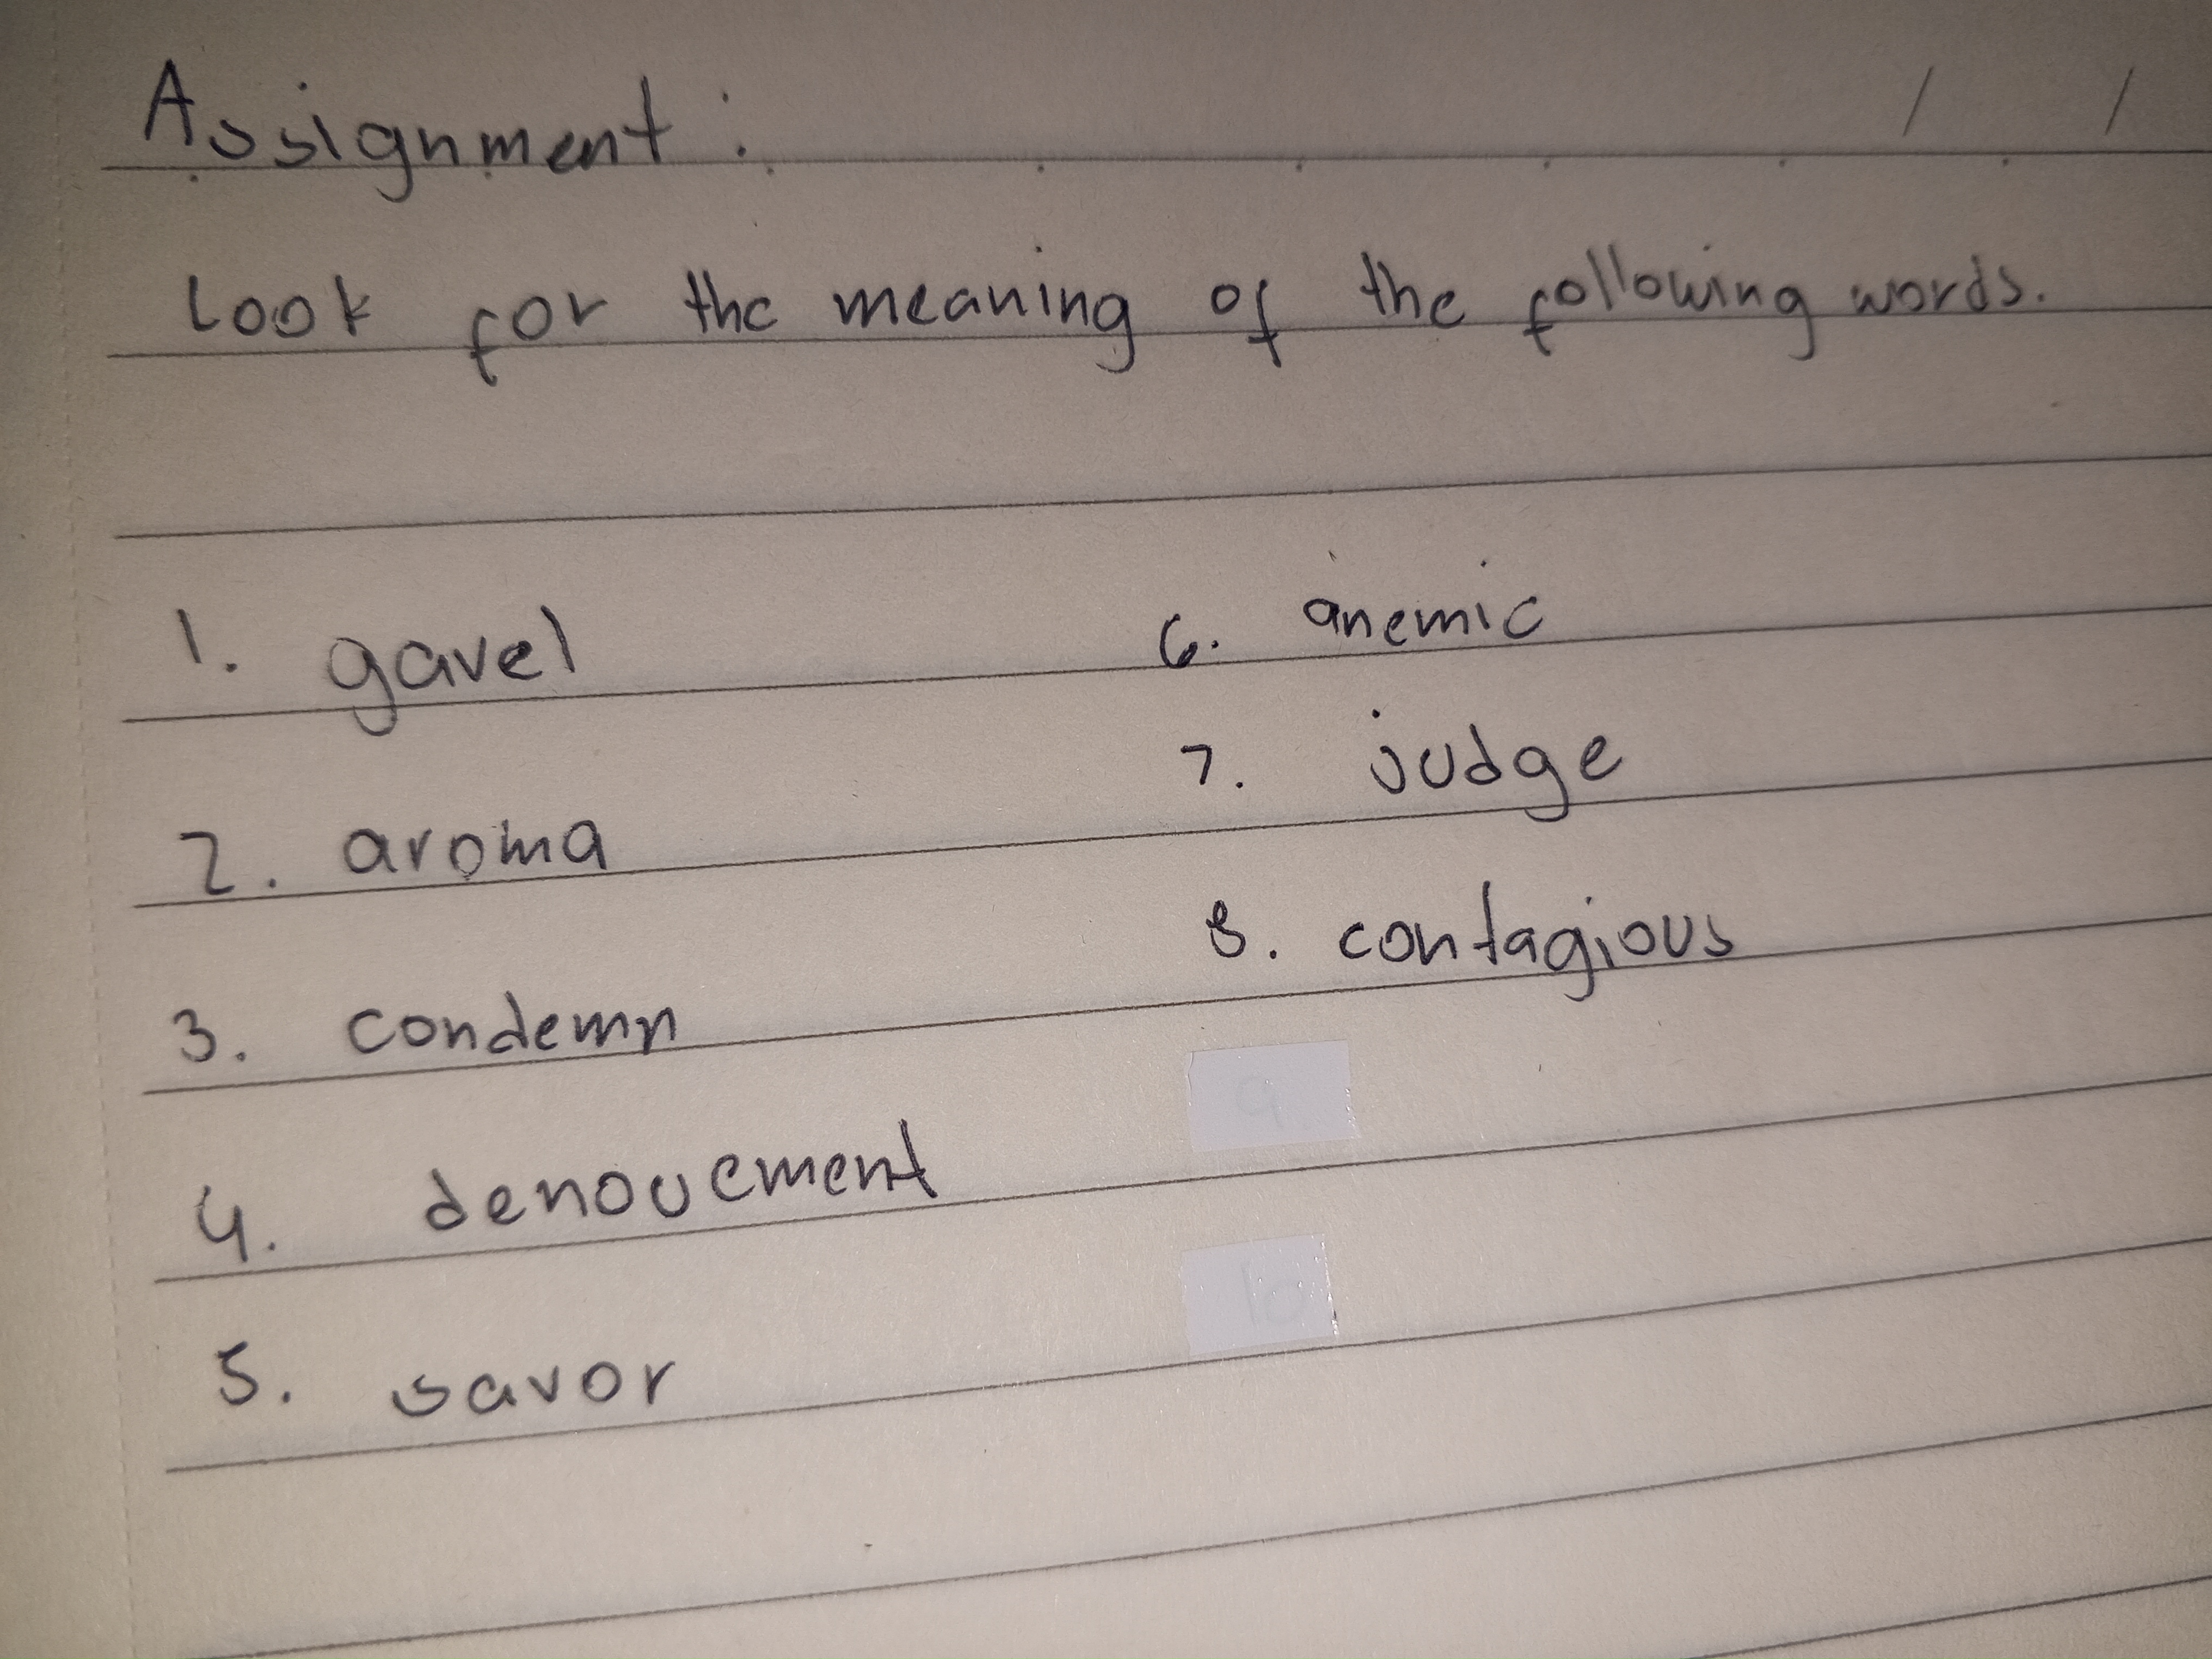 Assignment:
Look for the meaning of the following words.
1. gavel
2. aroma
3. condemn
4. denouement
5. savor
6. anemic
7. judge
8. contagious
9
10